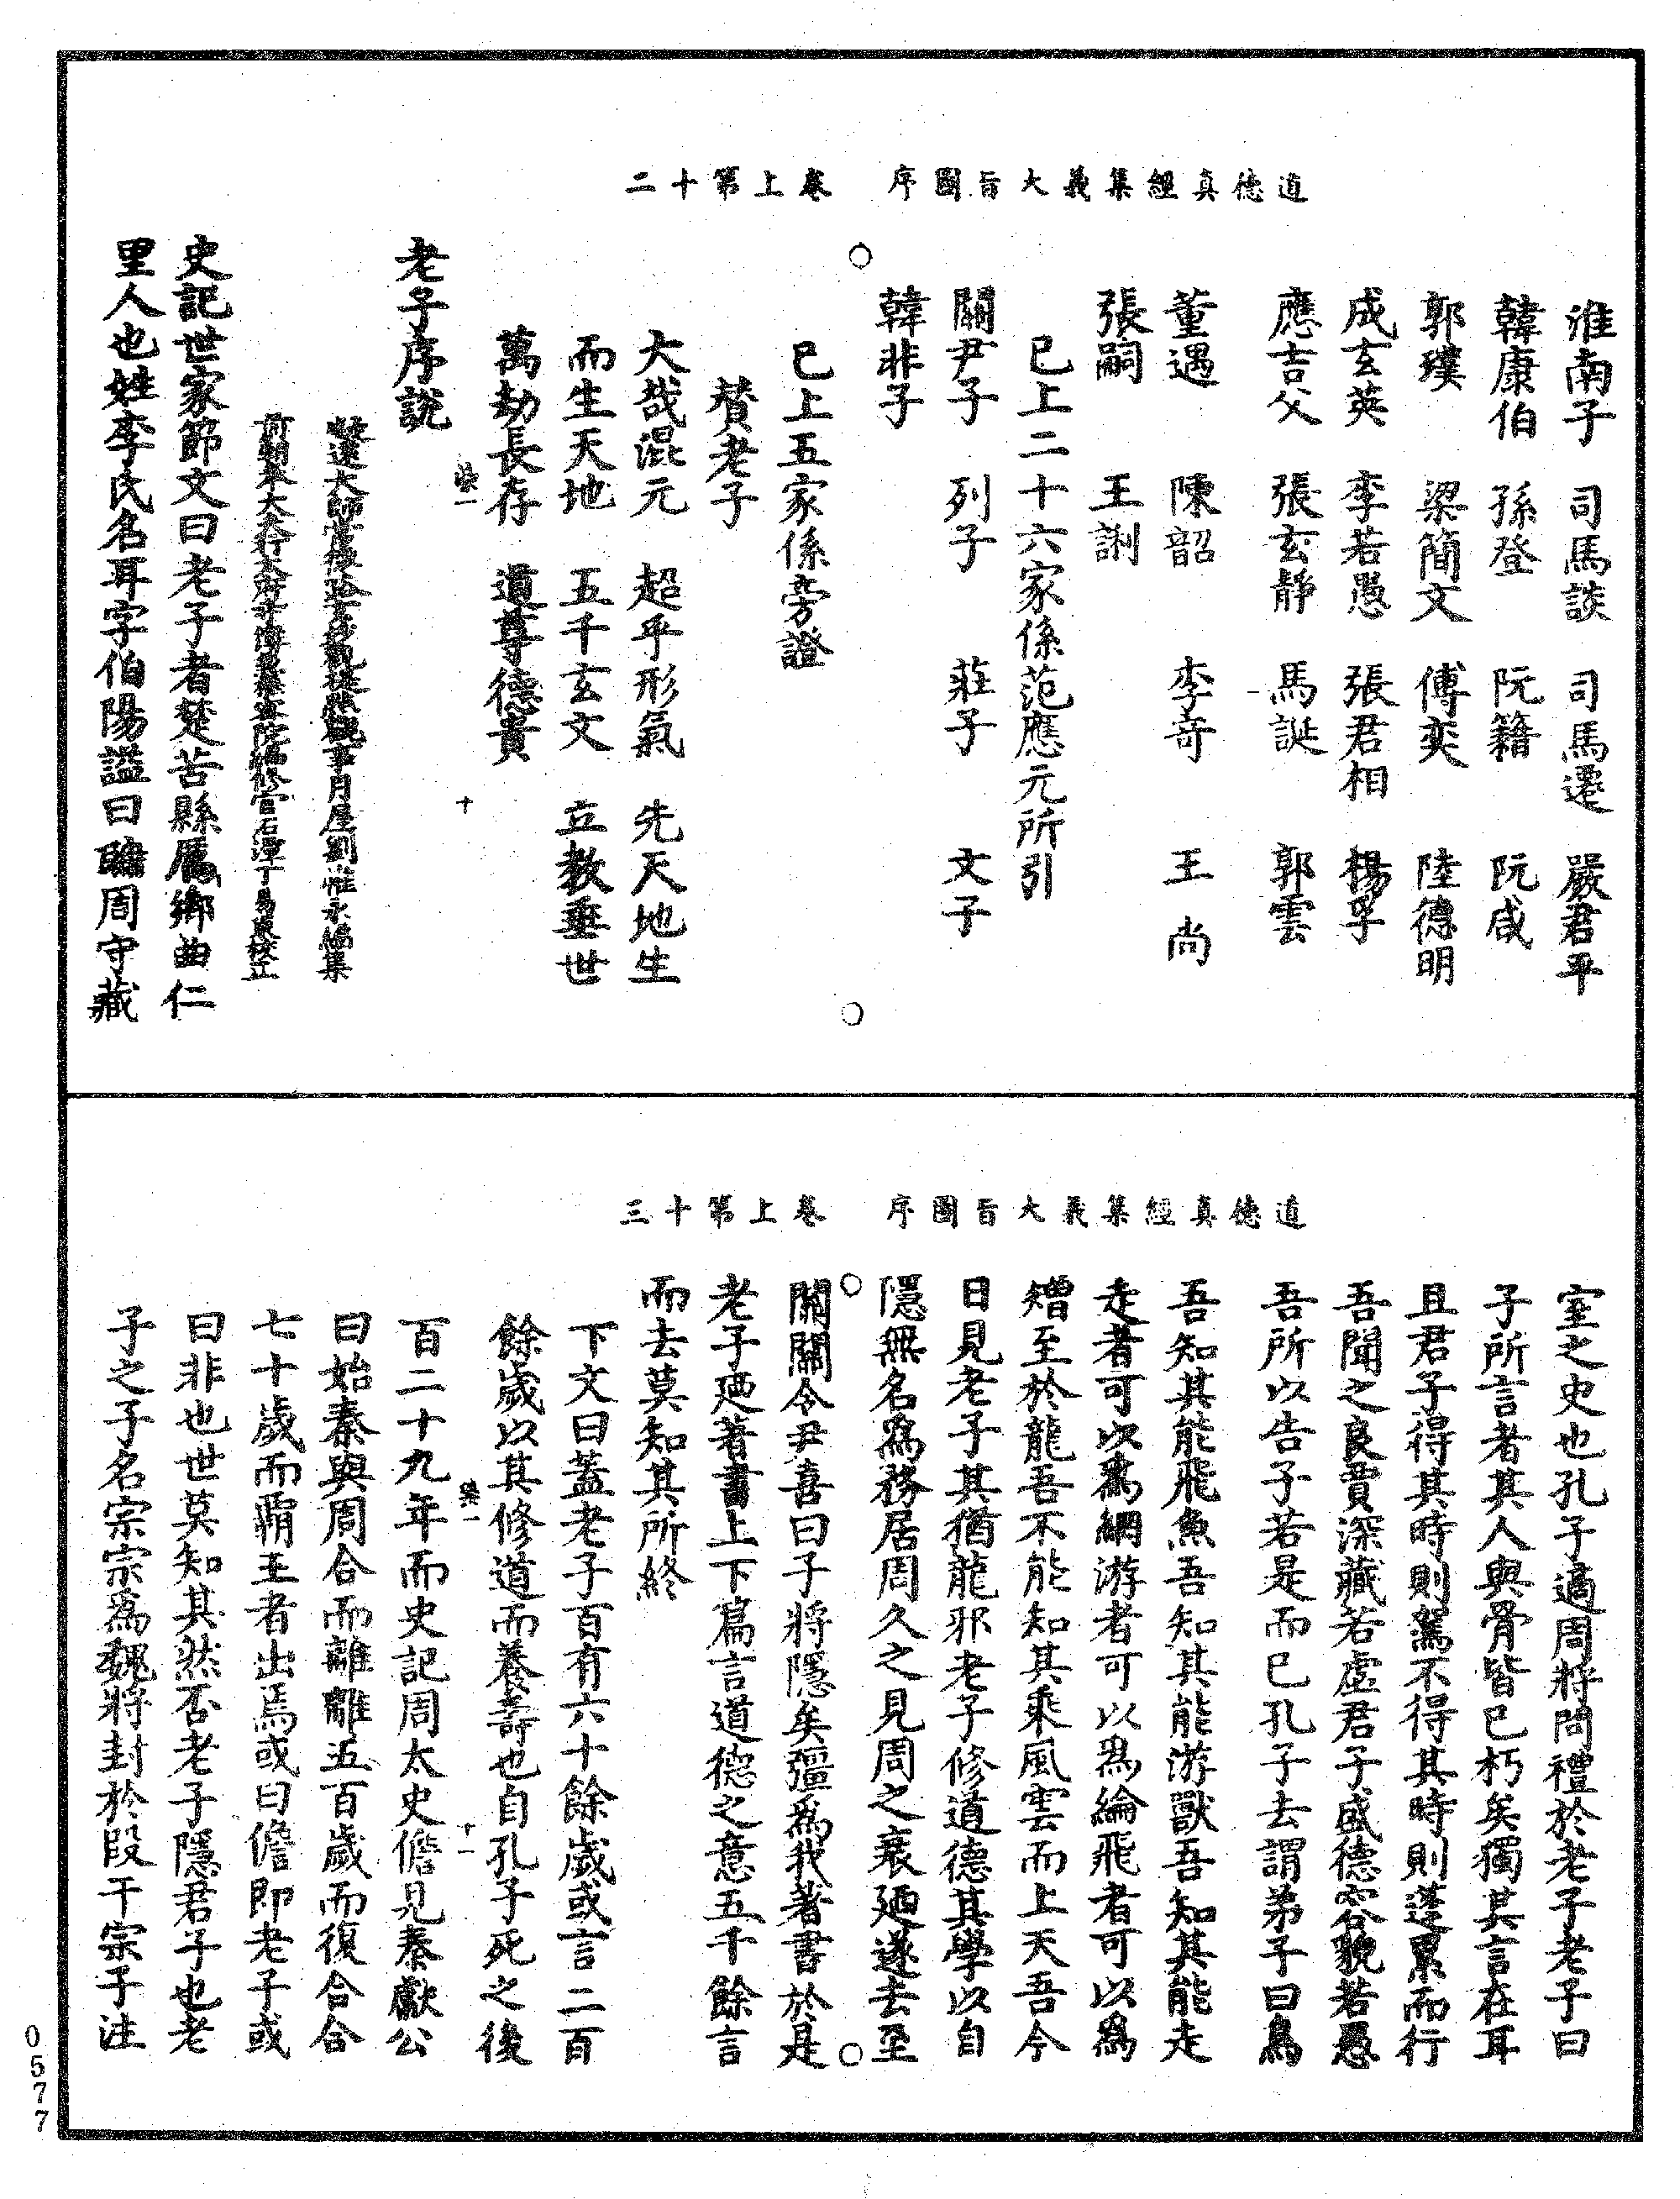 道德真經集義大旨圖序　卷上第十二
淮南子　司馬談　司馬遷　嚴君平
韓康伯　孫登　阮籍　阮咸
郭璞　梁簡文　傅奕　陸德明
成玄英　李若愚　張君相　楊孚
應吉父　張玄靜　馬誕　郭雲
董遇　陳韶　李奇　王尚
張嗣　王譋
已上二十六家係范應元所引
關尹子　列子　莊子　文子
韓非子
○　○
已上五家係旁證
贊老子
大哉混元　超乎形氣　先天地生
而生天地　五千玄文　立教垂世
萬劫長存　道尊德貴
染一　十
老子序說
凝遠大師常德路玄妙觀提點觀事月屋劉惟永編集
前朝奉大夫行太府寺簿兼樞密院編修官石潭丁易東校正
史記世家節文曰老子者楚苦縣厲鄉曲仁
里人也姓李氏名耳字伯陽謚曰聃周守藏
道德真經集義大旨圖序　卷上第十三
室之史也孔子適周將問禮於老子老子曰
子所言者其人與骨皆已朽矣獨其言在耳
且君子得其時則駕不得其時則蓬累而行
吾聞之良賈深藏若虛君子盛德容貌若愚
吾所以告子若是而已孔子去謂弟子曰鳥
吾知其能飛魚吾知其能游獸吾知其能走
走者可以爲網游者可以爲綸飛者可以爲
矰至於龍吾不能知其乘風雲而上天吾今
日見老子其猶龍邪老子修道德其學以自
隱無名爲務居周久之見周之衰廼遂去至
○　○
關關令尹喜曰子將隱矣彊爲我著書於是
老子廼著書上下篇言道德之意五千餘言
而去莫知其所終
下文曰蓋老子百有六十餘歲或言二百
餘歲以其修道而養壽也自孔子死之後
染一　十一
百二十九年而史記周太史儋見秦獻公
曰始秦與周合而離離五百歲而復合合
七十歲而霸王者出焉或曰儋即老子或
曰非也世莫知其然否老子隱君子也老
子之子名宗宗爲魏將封於段干宗子注
0577